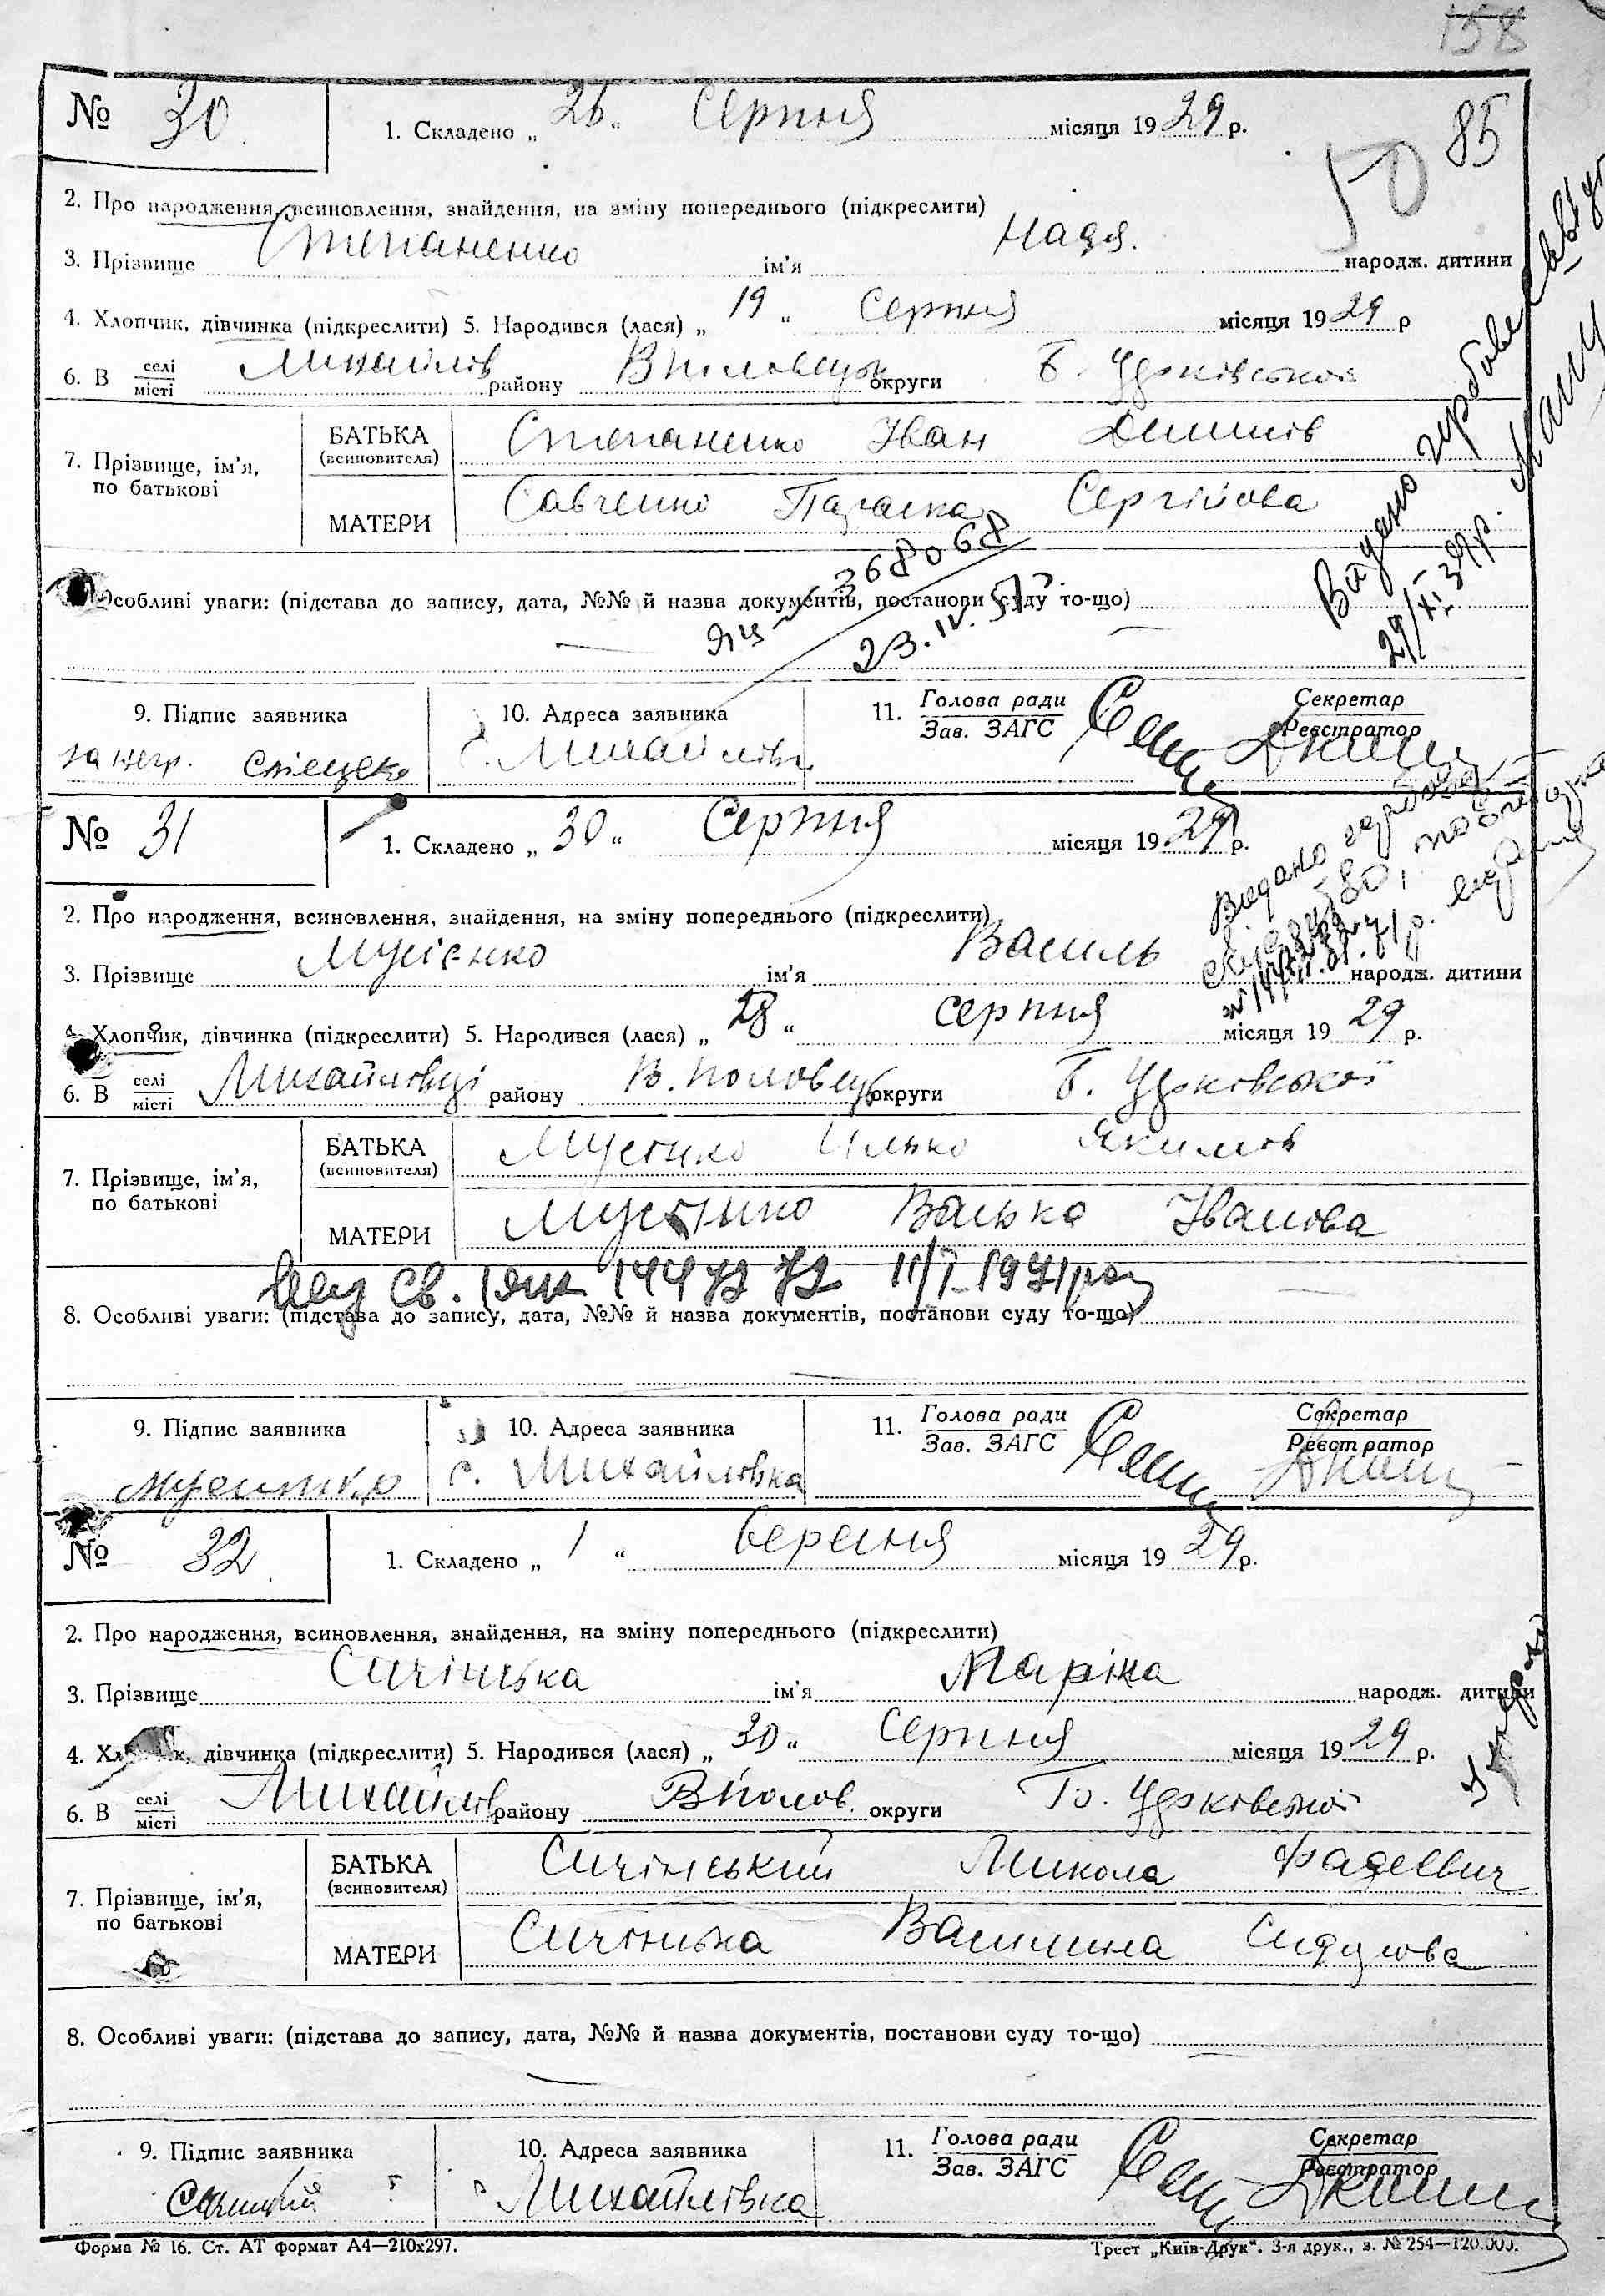 158
№ 30. 1. Складено „ 26 “ Серпня місяця 1929 р.
85
50
2. Про народження, всиновлення, знайдення, на зміну попереднього (підкреслити)
3. Прізвище Степаненко ім'я Надя. народж. дитини
4. Хлопчик, дівчинка (підкреслити) 5. Народився (лася) „ 19 “ Серпня місяця 1929 р
6. В селі/місті Михайлів району В половецьк округи Б. Церківської
7. Прізвище, ім'я, по батькові
БАТЬКА (всиновителя) Степаненко Іван
МАТЕРИ Савченко Параска Сергійова
Особливі уваги: (підстава до запису, дата, №№ й назва документів, постанови суду то-що)
368068
23.IV.
Видано
29/XI 39р.
9. Підпис заявника 10. Адреса заявника 11. Голова ради/Зав. ЗАГС Секретар/Реєстратор
за негр. с. Михайлівка
№ 31 1. Складено „ 30 “ Серпня місяця 1929 р.
Видано
2. Про народження, всиновлення, знайдення, на зміну попереднього (підкреслити)
3. Прізвище Мусієнко ім'я Василь народж. дитини
4. Хлопчик, дівчинка (підкреслити) 5. Народився (лася) „ 28 “ серпня місяця 1929 р.
6. В селі/місті Михайлівці району В. Половецьк округи Б. Церківської
7. Прізвище, ім'я, по батькові
БАТЬКА (всиновителя) Мусієнко Илько Якимов
МАТЕРИ Мусієнко Ванька Іванова
св. 1971
8. Особливі уваги: (підстава до запису, дата, №№ й назва документів, постанови суду то-що)
9. Підпис заявника 10. Адреса заявника 11. Голова ради/Зав. ЗАГС Секретар/Реєстратор
Мусиенко с. Михайлівка
№ 32. 1. Складено „ 1 “ Вересня місяця 1929 р.
2. Про народження, всиновлення, знайдення, на зміну попереднього (підкреслити)
3. Прізвище Сичінська ім'я Маріка народж. дитини
4. Хлопчик, дівчинка (підкреслити) 5. Народився (лася) „ 30 “ Серпня місяця 1929 р.
6. В селі/місті Михайлів району В полов. округи Б. Церківської
7. Прізвище, ім'я, по батькові
БАТЬКА (всиновителя) Сичінський Микола Фадеевич
МАТЕРИ Сичінська Василина
8. Особливі уваги: (підстава до запису, дата, №№ й назва документів, постанови суду то-що)
9. Підпис заявника 10. Адреса заявника 11. Голова ради/Зав. ЗАГС Секретар/Реєстратор
с Михайлівка
Форма № 16. Ст. АТ формат А4—210х297. Трест „Київ-Друк“. 3-я друк., з. № 254—120.000.